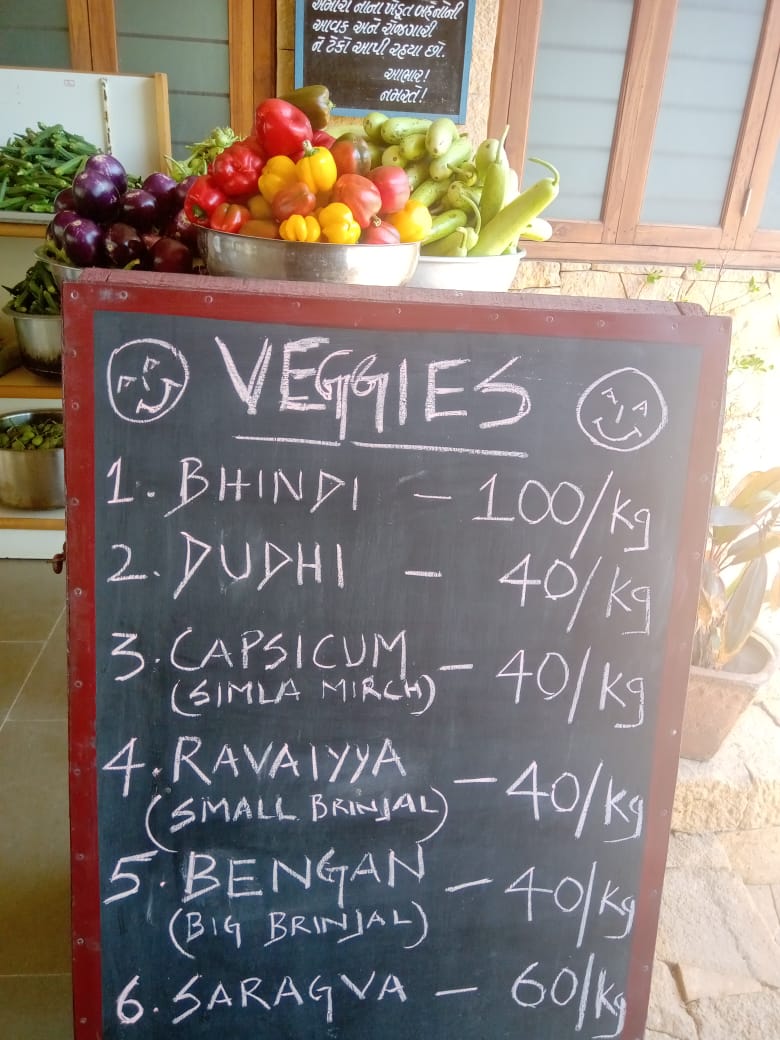 અમારા નાના ખેડૂત બહેનોની
આવક અને રોજગારી
ને ટેકો આપી રહયા છો.
આભાર!
નમસ્તે!
VEGGIES
1. BHINDI - 100/kg
2. DUDHI - 40/kg
3. CAPSICUM - 40/kg
(SIMLA MIRCH)
4. RAVAIYYA - 40/kg
(SMALL BRINJAL)
5. BENGAN - 40/kg
(BIG BRINJAL)
6. SARAGVA - 60/kg